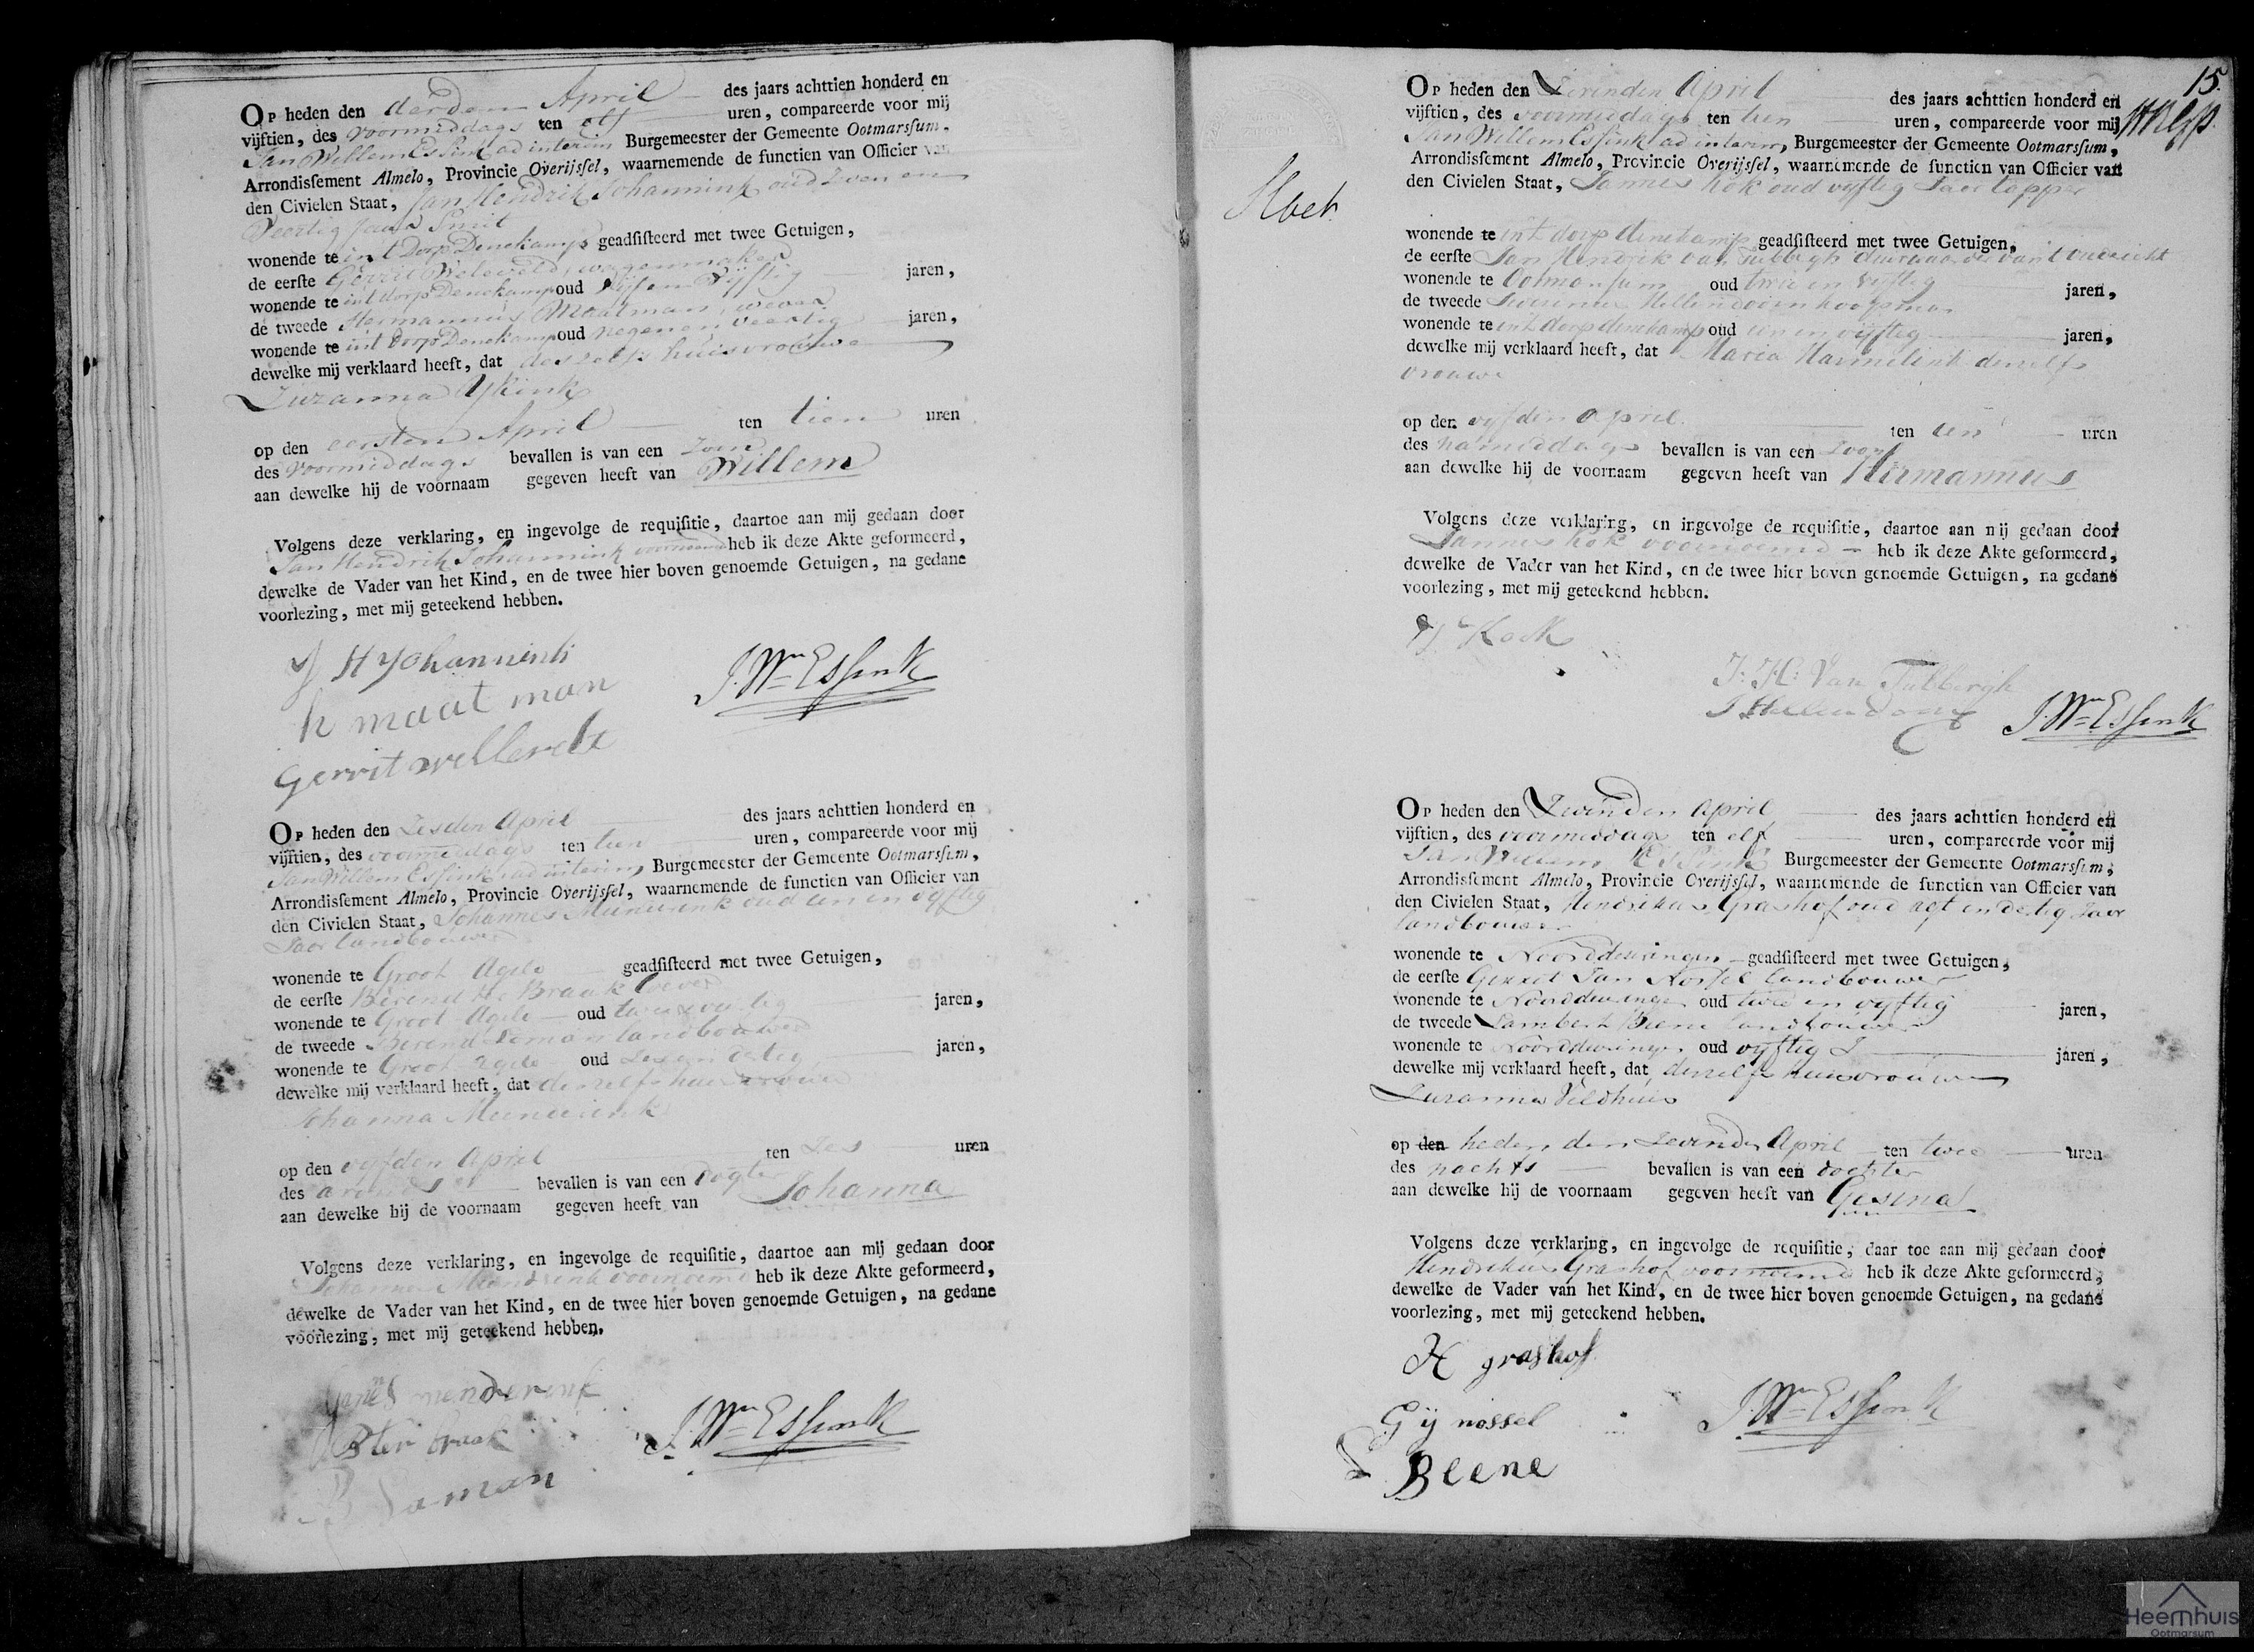 Op heden den derden April des jaars achttien honderd en
vijftien, des voormiddags ten elf uren, compareerde voor mij
Jan Willem Essink ad interim Burgemeester der Gemeente Ootmarssum,
Arrondissement Almelo, Provincie Overijssel, waarnemende de functien van Officier van
den Civielen Staat, Jan Hendrik Johannink oud zeven en
Veertig Jaar Smit
wonende te int Dorp Denekamp geadsisteerd met twee Getuigen,
de eerste Gerrit Weleveld, wagenmaker
wonende te int dorp Denekamp oud Vijf en Vijftig jaren,
de tweede Hermannus Maatman, wever
wonende te int Dorp Denekamp oud negen en veertig jaren,
dewelke mij verklaard heeft, dat deszelfs huisvrouwe
Zuzanna
op den eersten April ten tien uren
des voormiddags bevallen is van een Zoon
aan dewelke hij de voornaam gegeven heeft van Willem
Volgens deze verklaring, en ingevolge de requisitie, daartoe aan mij gedaan door
Jan Hendrik Johannink voornoemd heb ik deze Akte geformeerd,
dewelke de Vader van het Kind, en de twee hier boven genoemde Getuigen, na gedane
voorlezing, met mij geteekend hebben.
J H Johannink
h maat man
J. Wm Essink
Gerrit
Op heden den Zesden April des jaars achttien honderd en
vijftien, des voormiddags ten tien uren, compareerde voor mij
Jan Willem Essink ad interim Burgemeester der Gemeente Ootmarssum,
Arrondissement Almelo, Provincie Overijssel, waarnemende de functien van Officier van
den Civielen Staat, Johannes oud een en vyftig
Jaar landbouwer
wonende te Groot Agele geadsisteerd met twee Getuigen,
de eerste Berend te Braak wever
wonende te Groot Agele oud jaren,
de tweede Berend landbouwer
wonende te Groot Agele oud Zes en dertig jaren,
dewelke mij verklaard heeft, dat deszelfs huisvrouwe
Johanna
op den vyfden April ten Zes uren
des avonds bevallen is van een dogter
aan dewelke hij de voornaam gegeven heeft van Johanna
Volgens deze verklaring, en ingevolge de requisitie, daartoe aan mij gedaan door
Johannes voornoemd heb ik deze Akte geformeerd,
dewelke de Vader van het Kind, en de twee hier boven genoemde Getuigen, na gedane
voorlezing, met mij geteekend hebben.
menderink
B ter braak
J. Wm Essink
15.
Hoek
Op heden den Zevenden April des jaars achttien honderd en
vijftien, des voormiddags ten tien uren, compareerde voor mij
Jan Willem Essink ad interim, Burgemeester der Gemeente Ootmarssum,
Arrondissement Almelo, Provincie Overijssel, waarnemende de functien van Officier van
den Civielen Staat, Jannes Kok oud vyftig Jaar tapper
wonende te int dorp denekamp geadsisteerd met twee Getuigen,
de eerste Jan Hendrik van Tubbergh
wonende te Ootmarsum oud twee en vyftig jaren,
de tweede Hellendoorn koopman
wonende te int dorp denekamp oud een en vyftig jaren,
dewelke mij verklaard heeft, dat Maria Harmelink deszelfs
vrouwe
op den vyfden April ten een uren
des namiddags bevallen is van een Zoon
aan dewelke hij de voornaam gegeven heeft van Hermannus
Volgens deze verklaring, en ingevolge de requisitie, daartoe aan mij gedaan door
Jannes Kok voornoemd heb ik deze Akte geformeerd,
dewelke de Vader van het Kind, en de twee hier boven genoemde Getuigen, na gedane
voorlezing, met mij geteekend hebben.
J Kock
J: H: Van Tubbergh
J. Wm Essink
Op heden den Zevenden April des jaars achttien honderd en
vijftien, des voormiddags ten elf uren, compareerde voor mij
Jan Willem Essink Burgemeester der Gemeente Ootmarssum,
Arrondissement Almelo, Provincie Overijssel, waarnemende de functien van Officier van
den Civielen Staat, Hendrikus Grashof oud agt en dertig Jaar
landbouwer
wonende te Noorddeuringen geadsisteerd met twee Getuigen,
de eerste Gerrit Jan Nossel landbouwer
wonende te Noorddeuringen oud twee en vyftig jaren,
de tweede Lambert Beene landbouwer
wonende te Noorddeuringen oud vyftig J jaren,
dewelke mij verklaard heeft, dat deszelfs huisvrouwe
Zuzanna Veldhuis
op den heden den Zevenden April ten twee uren
des nachts bevallen is van een dochter
aan dewelke hij de voornaam gegeven heeft van Gesina
Volgens deze verklaring, en ingevolge de requisitie, daar toe aan mij gedaan door
Hendrikus Grashof voornoemd heb ik deze Akte geformeerd,
dewelke de Vader van het Kind, en de twee hier boven genoemde Getuigen, na gedane
voorlezing, met mij geteekend hebben.
H grashof
G ij nossel
J. Wm Essink
L Beene
Heemhuis
Ootmarsum